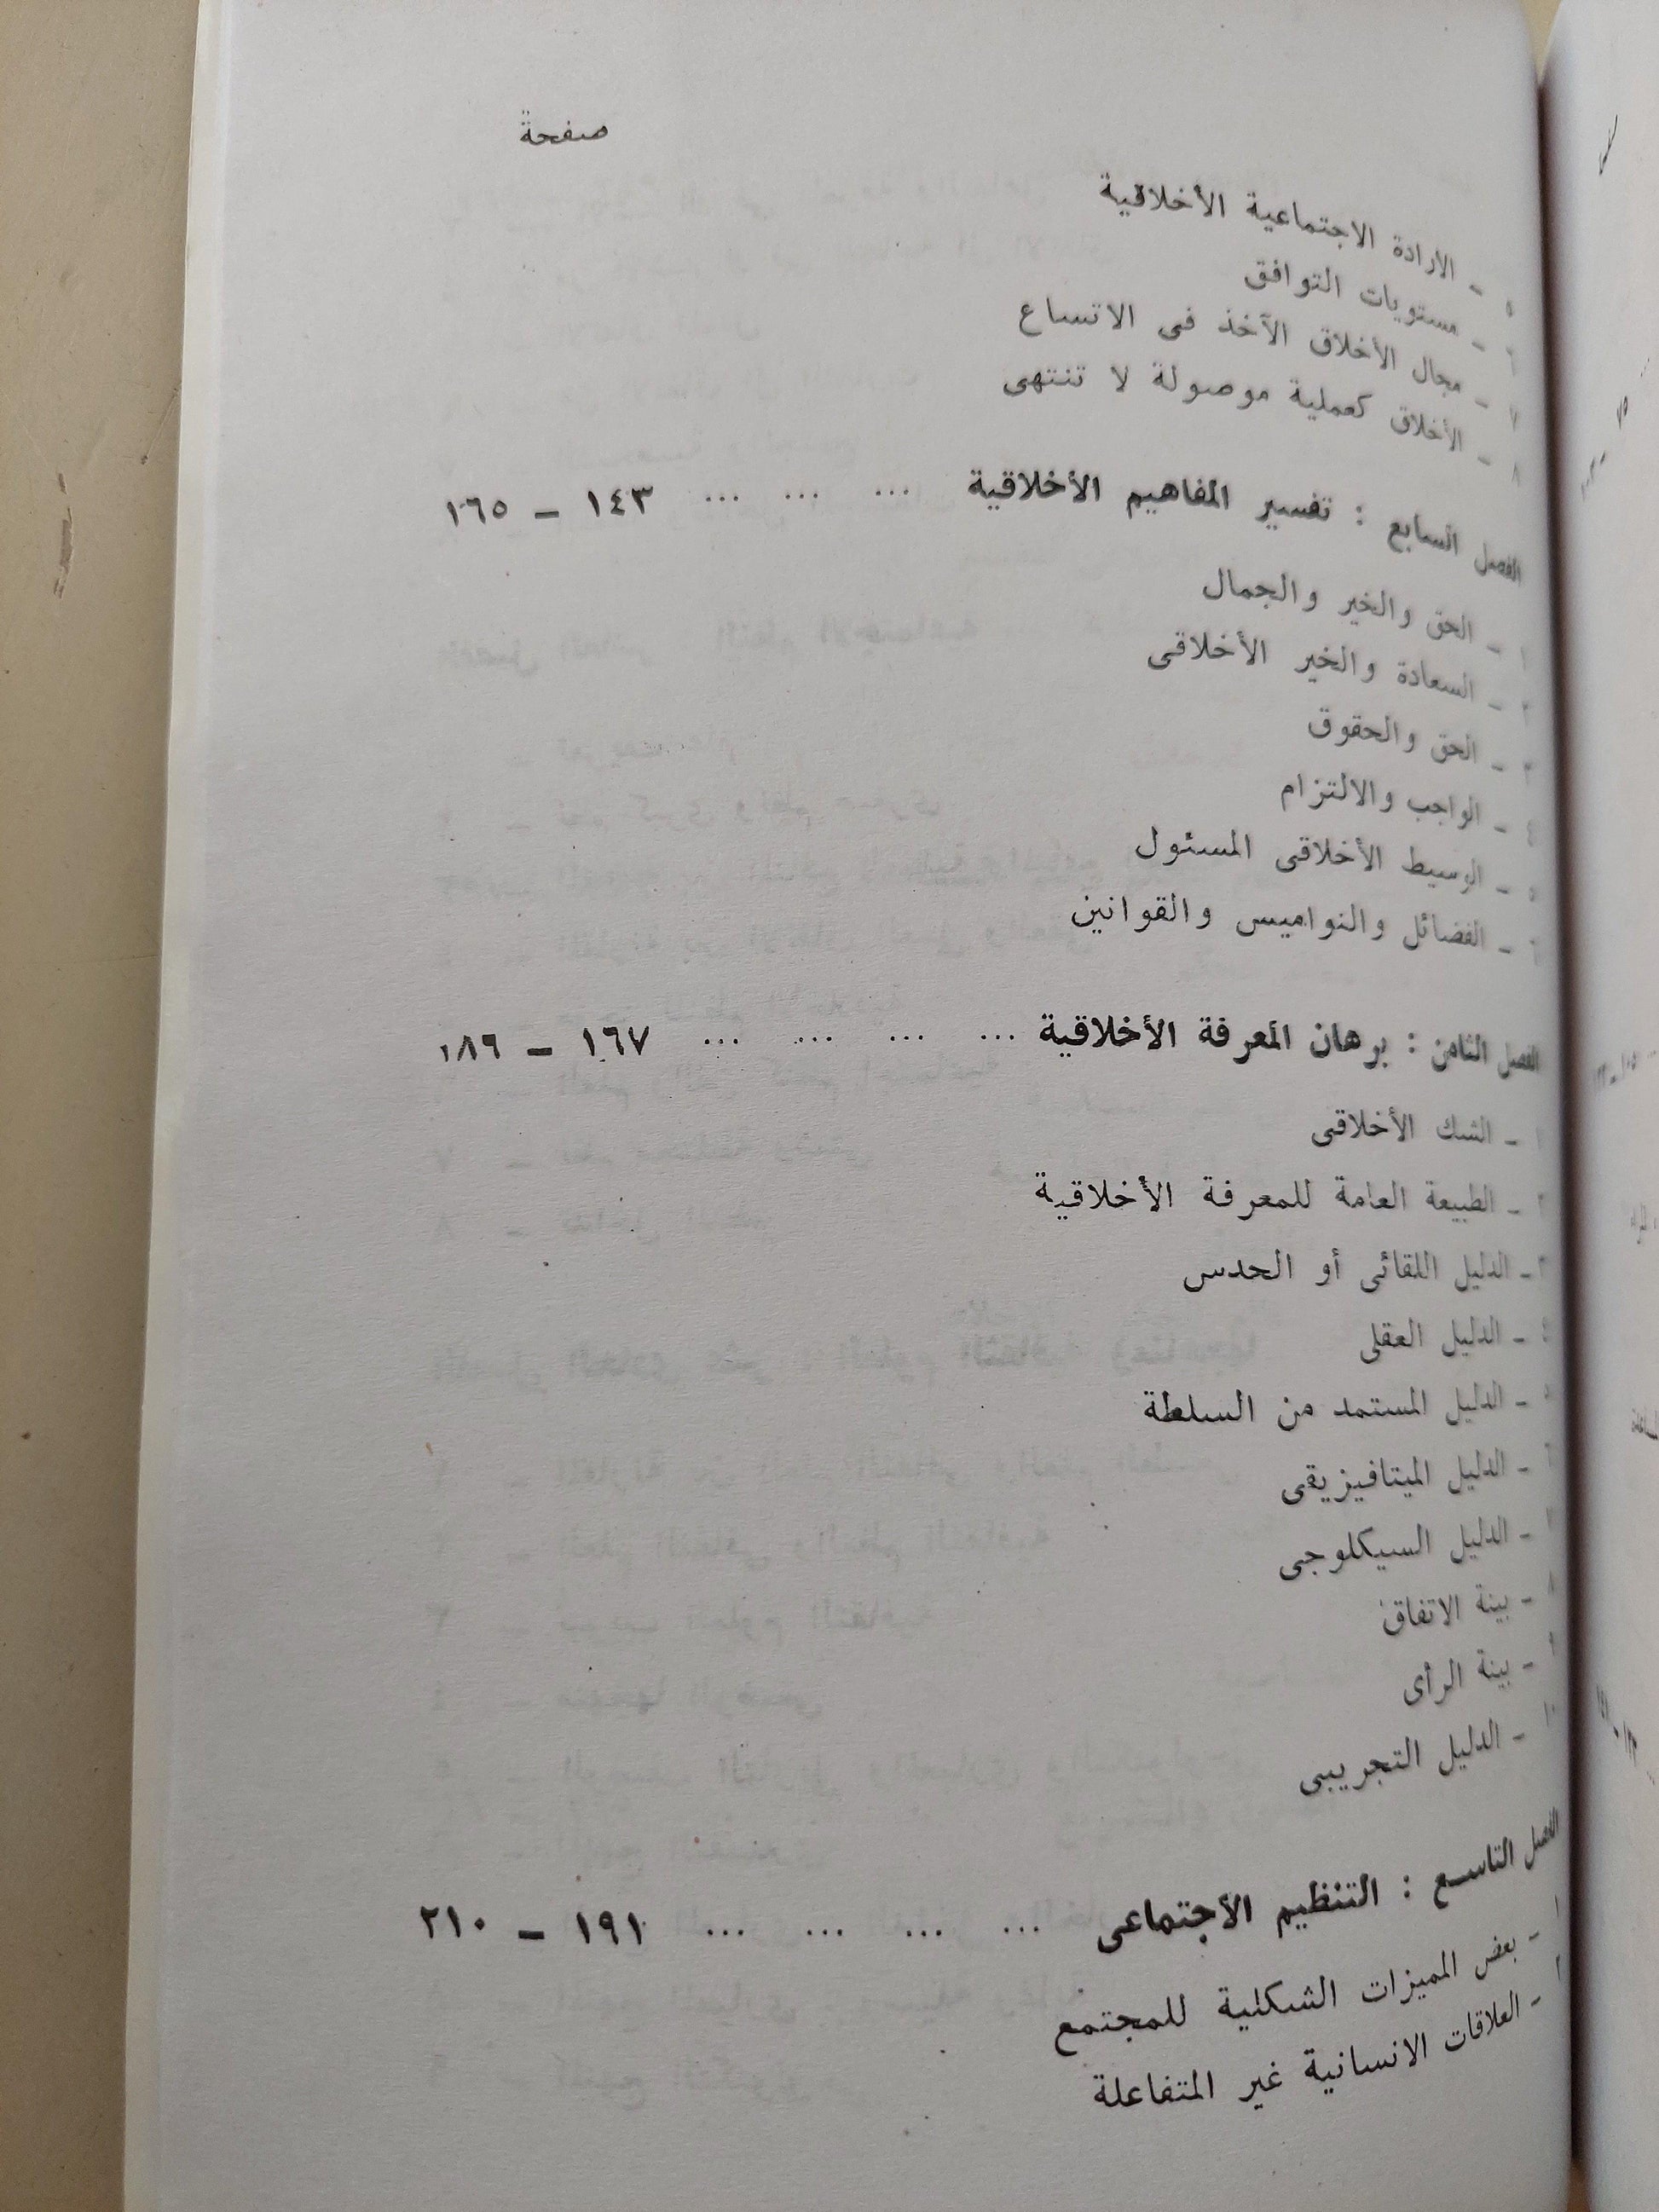 صفحة
٥ – الارادة الاجتماعية الأخلاقية
٦ – مستويات التوافق
٧ – مجال الأخلاق الآخذ فى الاتساع
٨ – الأخلاق كعملية موصولة لا تنتهى
الفصل السابع : تفسير المفاهيم الأخلاقية ... ... ... ١٤٣ – ١٦٥
١ – الحق والخير والجمال
٢ – السعادة والخير الأخلاقى
٣ – الحق والحقوق
٤ – الواجب والالتزام
٥ – الوسيط الأخلاقى المسئول
٦ – الفضائل والنواميس والقوانين
الفصل الثامن : برهان المعرفة الأخلاقية ... ... ... ... ١٦٧ – ١٨٩
١ – الشك الأخلاقى
٢ – الطبيعة العامة للمعرفة الأخلاقية
٣ – الدليل اللقائى أو الحدس
٤ – الدليل العقلى
٥ – الدليل المستمد من السلطة
٦ – الدليل الميتافيزيقى
٧ – الدليل السيكلوجى
٨ – بينة الاتفاق
٩ – بينة الرأى
١٠ – الدليل التجريبى
الفصل التاسع : التنظيم الأجتماعى ... ... ... ... ١٩١ – ٢١٠
١ – بعض المميزات الشكلية للمجتمع
٢ – العلاقات الانسانية غير المتفاعلة